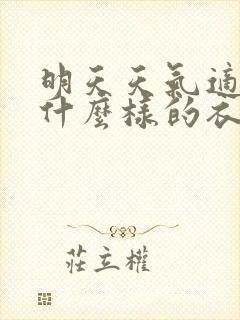 明天天氣適
什麼樣的衣
莊立權